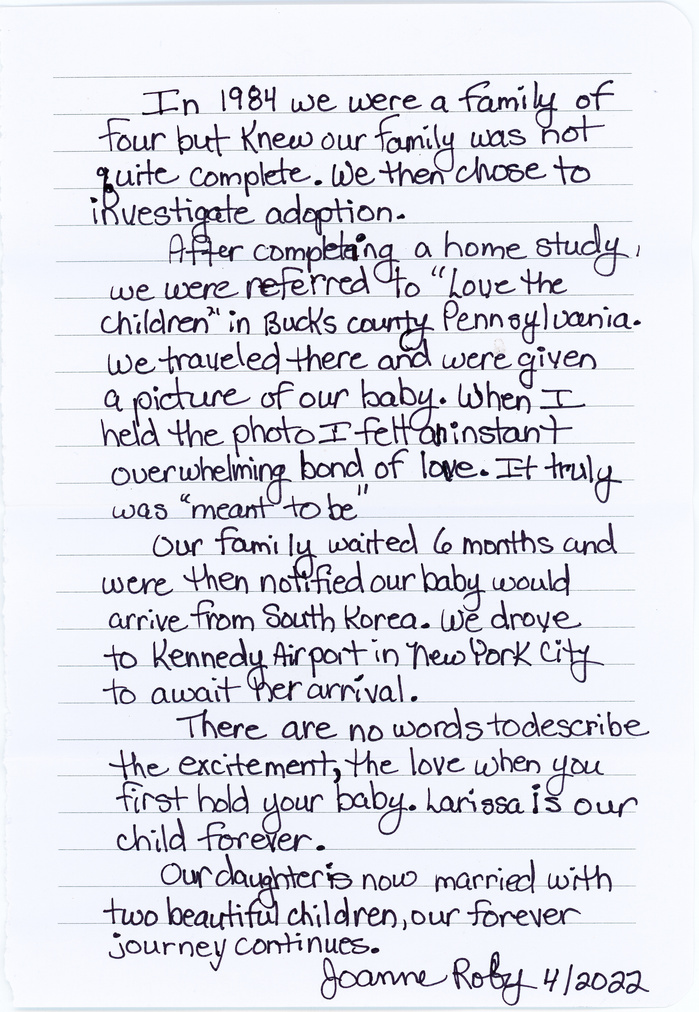 In 1984 we were a family of
four but knew our family was not
quite complete. We then chose to
investigate adoption.
After completing a home study,
we were referred to "Love the
children" in Bucks county Pennsylvania.
We traveled there and were given
a picture of our baby. When I
held the photo I felt an instant
overwhelming bond of love. It truly
was "meant to be"
Our family waited 6 months and
were then notified our baby would
arrive from South Korea. We drove
to Kennedy Airport in New York City
to await her arrival.
There are no words to describe
the excitement, the love when you
first hold your baby. Larissa is our
child forever.
Our daughter is now married with
two beautiful children, our forever
journey continues.
Joanne Roby 4/2022